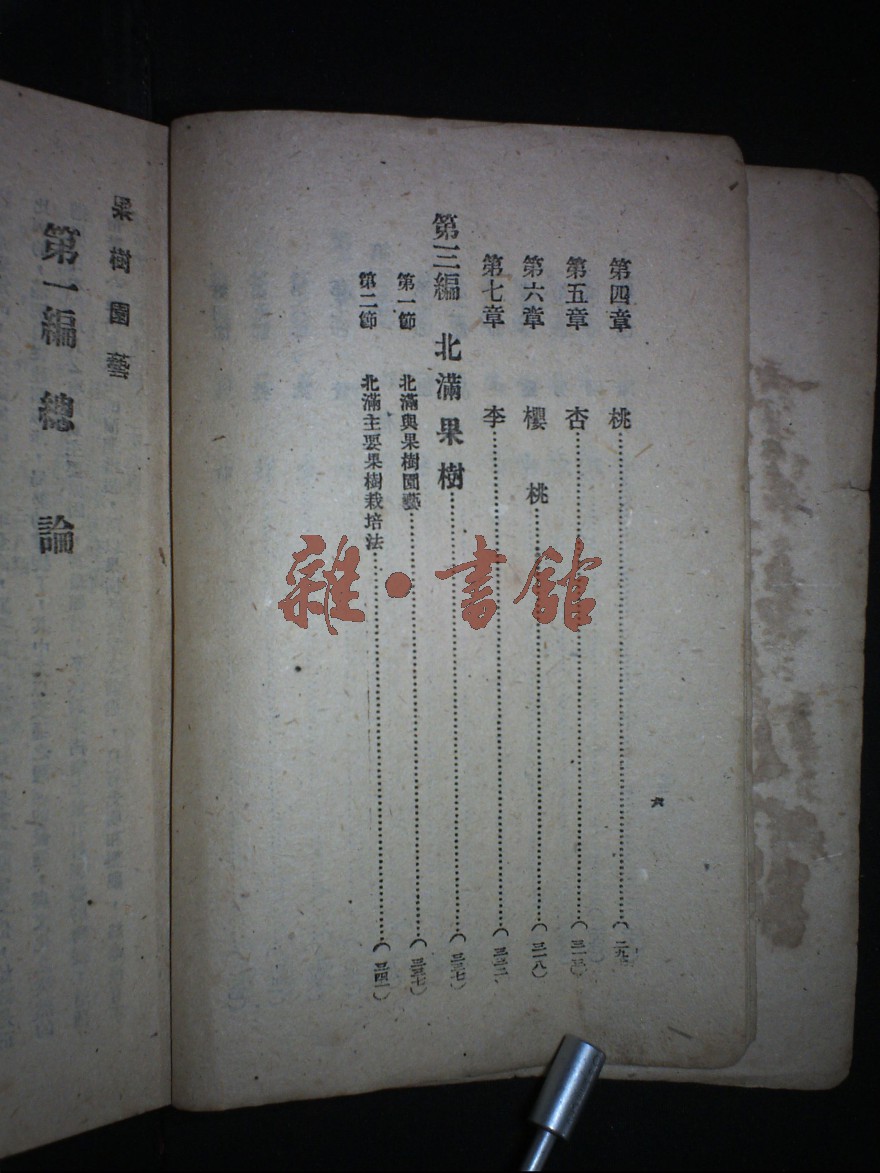 第四章 桃………(二九
第五章 杏………(三一三)
第六章 櫻桃………(三一八)
第七章 李………(三三二
第三編 北滿果樹………(三三七)
第一節 北滿與果樹園藝………(三三七)
第二節 北滿主要果樹栽培法………(三四一)
六
果樹園藝
第一編 總論
雜·書館